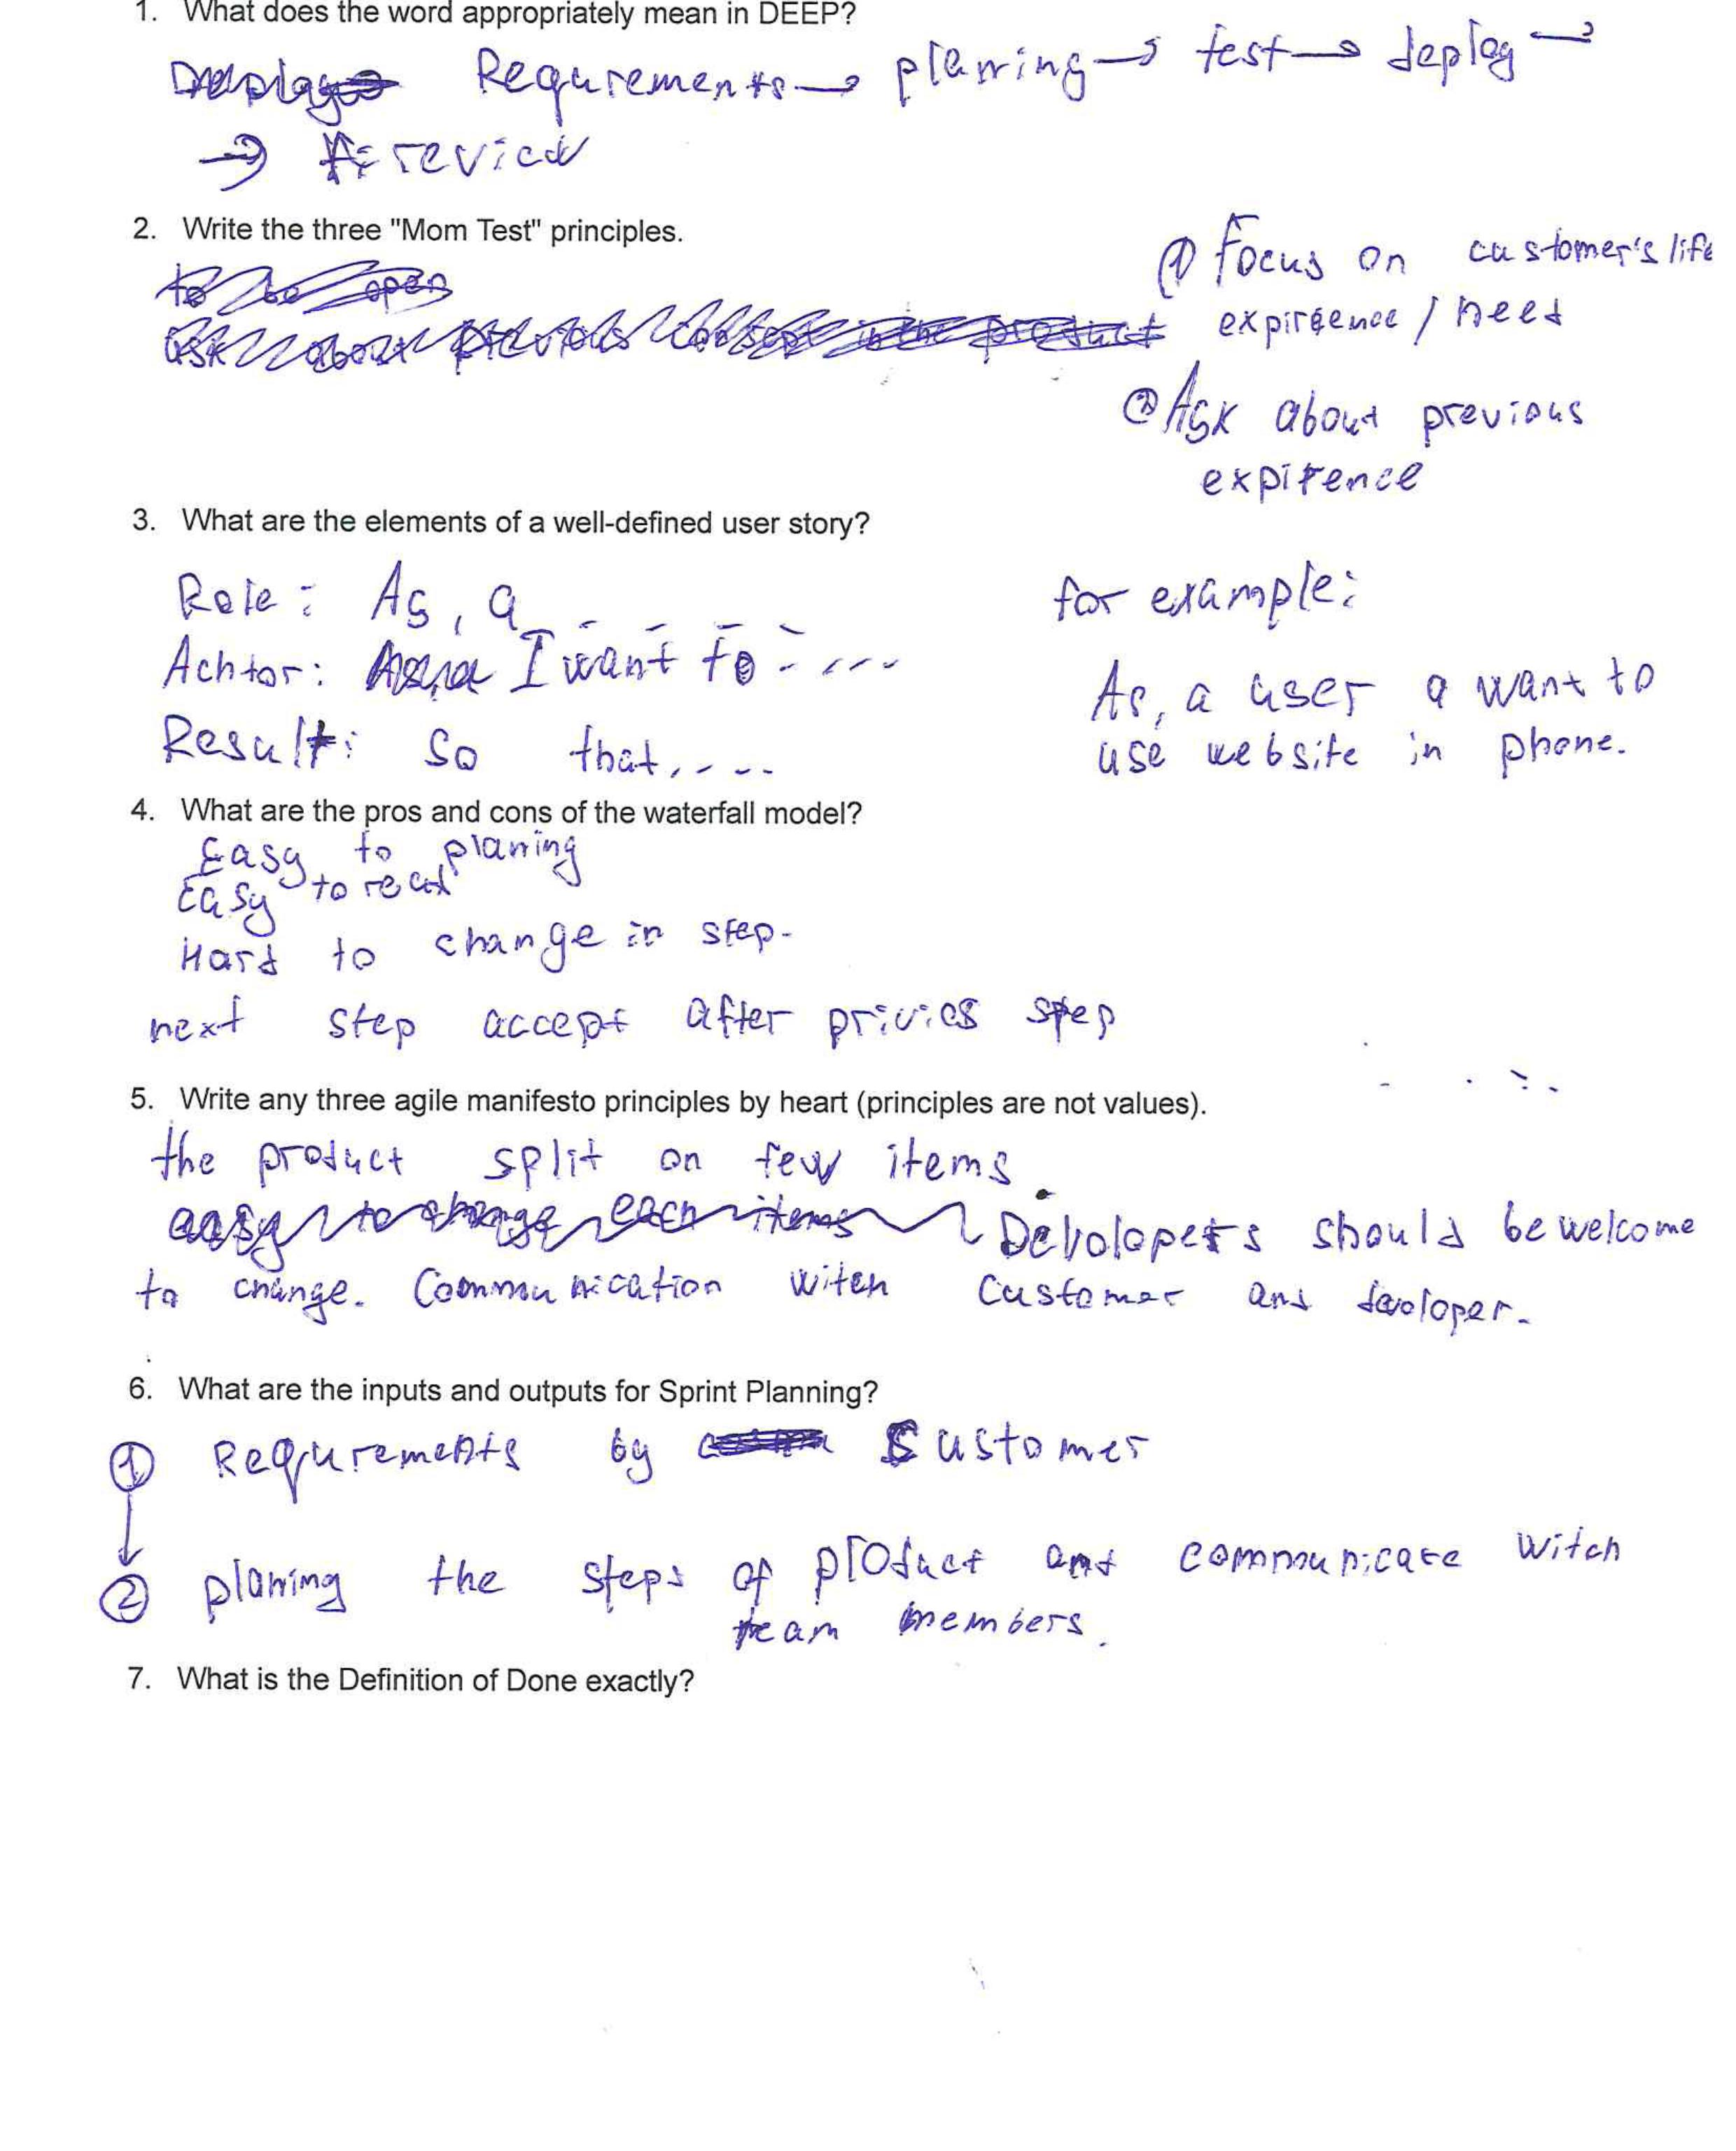 1. What does the word appropriately mean in DEEP?
Requrements → planning → test → deploy →
→ review
2. Write the three "Mom Test" principles.
to be open
ask about previous consept in the product
① Focus on customer's life
expirgence / need
② Ask about previous
expirence
3. What are the elements of a well-defined user story?
Role: As, a - - - -
Achtor: I want to - - - -
Result: so that, - - -
for example:
As, a user a want to
use website in phone.
4. What are the pros and cons of the waterfall model?
Easy to planing
Easy to read
Hard to change in step.
next step accept after privies step
5. Write any three agile manifesto principles by heart (principles are not values).
the product split on few items.
easy to change each items Devolopers should be welcome
to change. Communication witch customer and devoloper.
6. What are the inputs and outputs for Sprint Planning?
① Requrements by Customer
② planing the steps of product and communicate witch
team members.
7. What is the Definition of Done exactly?